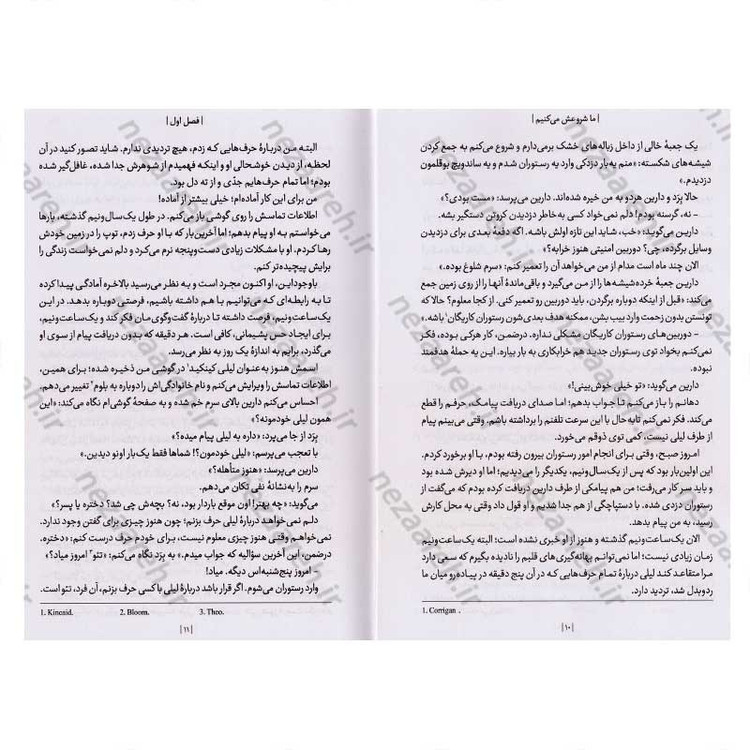 | ما شروعش می‌کنیم |
یک جعبهٔ خالی از داخل زباله‌های خشک برمی‌دارم و شروع می‌کنم به جمع کردن
شیشه‌های شکسته: «منم یه‌بار دزدکی وارد یه رستوران شدم و یه ساندویچ بوقلمون
دزدیدم.»
حالا برَد و دارین هردو به من خیره شده‌اند. دارین می‌پرسد: «مست بودی؟»
- نه، گرسنه بودم! دلم نمی‌خواد کسی به‌خاطر دزدیدن کروتن دستگیر بشه.
دارین می‌گوید: «خب، شاید این تازه اولش باشه. اگه دفعهٔ بعدی برای دزدیدن
وسایل برگرده، چی؟ دوربین امنیتی هنوز خرابه؟»
الان چند ماه است مدام از من می‌خواهد آن را تعمیر کنم: «سرم شلوغ بوده.»
دارین جعبهٔ خرده‌شیشه‌ها را از من می‌گیرد و باقی‌ماندهٔ آنها را از روی زمین جمع
می‌کند: «قبل از اینکه دوباره برگردن، باید دوربین رو تعمیر کنی. از کجا معلوم؟ حالا که
تونستن بدون زحمت وارد بیب بشن، ممکنه هدف بعدی‌شون رستوران کاریگان¹ باشه.»
- دوربین‌های رستوران کاریگان مشکلی نداره. درضمن، کار هرکی بوده، فکر
نمی‌کنم بخواد توی رستوران جدید هم خرابکاری به بار بیاره. این یه حملهٔ هدفمند
نبوده.
دارین می‌گوید: «تو خیلی خوش‌بینی!»
دهانم را باز می‌کنم تا جواب بدهم؛ اما صدای دریافت پیامک، حرفم را قطع
می‌کند. فکر نمی‌کنم تابه‌حال با این سرعت تلفنم را برداشته باشم. وقتی می‌بینم پیام
از طرف لیلی نیست، کمی توی ذوقم می‌خورد.
امروز صبح، وقتی برای انجام امور رستوران بیرون رفته بودم، با او برخورد کردم.
این اولین‌بار بود که پس از یک‌سال‌ونیم، یکدیگر را می‌دیدیم؛ اما او دیرش شده بود
و باید سر کار می‌رفت؛ من هم پیامکی از طرف دارین دریافت کرده بودم که می‌گفت از
رستوران دزدی شده. با دستپاچگی از هم جدا شدیم و او قول داد وقتی به محل کارش
رسید، به من پیام بدهد.
الان یک‌ساعت‌ونیم گذشته و هنوز از او خبری نشده است؛ البته یک‌ساعت‌ونیم
زمان زیادی نیست؛ اما نمی‌توانم بهانه‌گیری‌های قلبم را نادیده بگیرم که سعی دارد
مرا متقاعد کند لیلی دربارهٔ تمام حرف‌هایی که در آن پنج دقیقه در پیاده‌رو میان ما
ردوبدل شد، تردید دارد.
1. Corrigan .
|۱۰|
| فصل اول |
البته من دربارهٔ حرف‌هایی که زدم، هیچ تردیدی ندارم. شاید تصور کنید در آن
لحظه، از دیدن خوشحالی او و اینکه فهمیدم از شوهرش جدا شده، غافل‌گیر شده
بودم؛ اما تمام حرف‌هایم جدّی و از ته دل بود.
من برای این کار آماده‌ام؛ خیلی بیشتر از آماده!
اطلاعات تماسش را روی گوشی باز می‌کنم. در طول یک‌سال‌ونیم گذشته، بارها
می‌خواستم به او پیام بدهم؛ اما آخرین‌بار که با او حرف زدم، توپ را در زمین خودش
رها کردم. او با مشکلات زیادی دست‌وپنجه نرم می‌کرد و دلم نمی‌خواست زندگی را
برایش پیچیده‌تر کنم.
باوجوداین، او اکنون مجرد است و به نظر می‌رسید بالاخره آمادگی پیدا کرده
تا به رابطه‌ای که می‌توانیم با هم داشته باشیم، فرصتی دوباره بدهد. در این
یک‌ساعت‌ونیم، فرصت داشته تا دربارهٔ گفت‌وگوی‌مان فکر کند و یک‌ساعت‌ونیم،
برای ایجاد حس پشیمانی، کافی است. هر دقیقه که بدون دریافت پیام از سوی او
می‌گذرد، برایم به اندازهٔ یک روز به نظر می‌رسد.
اسمش هنوز به‌عنوان لیلی کینکید¹ در گوشی من ذخیره شده؛ برای همین،
اطلاعات تماسش را ویرایش می‌کنم و نام خانوادگی‌اش را دوباره به بلوم² تغییر می‌دهم.
احساس می‌کنم دارین بالای سرم خم شده و به صفحهٔ گوشی‌ام نگاه می‌کند: «این
همون لیلی خودمونه؟»
برَد از جا می‌پرد: «داره به لیلی پیام میده؟»
با تعجب می‌پرسم: «لیلی خودمون؟! شماها فقط یک‌بار اونو دیدین.»
دارین می‌پرسد: «هنوز متأهله؟»
سرم را به‌نشانهٔ نفی تکان می‌دهم.
می‌گوید: «چه بهتر! اون موقع باردار بود، نه؟ بچه‌ش چی شد؟ دختره یا پسر؟»
دلم نمی‌خواهد دربارهٔ لیلی حرف بزنم؛ چون هنوز چیزی برای گفتن وجود ندارد.
نمی‌خواهم وقتی هنوز چیزی معلوم نیست، برای خودم حرف درست کنم: «دختره.
درضمن، این آخرین سؤالیه که جواب میدم.» به برَد نگاه می‌کنم: «تئو³ امروز میاد؟»
- امروز پنج‌شنبه‌اس دیگه. میاد!
وارد رستوران می‌شوم. اگر قرار باشد دربارهٔ لیلی با کسی حرف بزنم، آن فرد، تئو است.
1. Kincaid. 2. Bloom. 3. Theo.
|۱۱|
nezaareh.ir